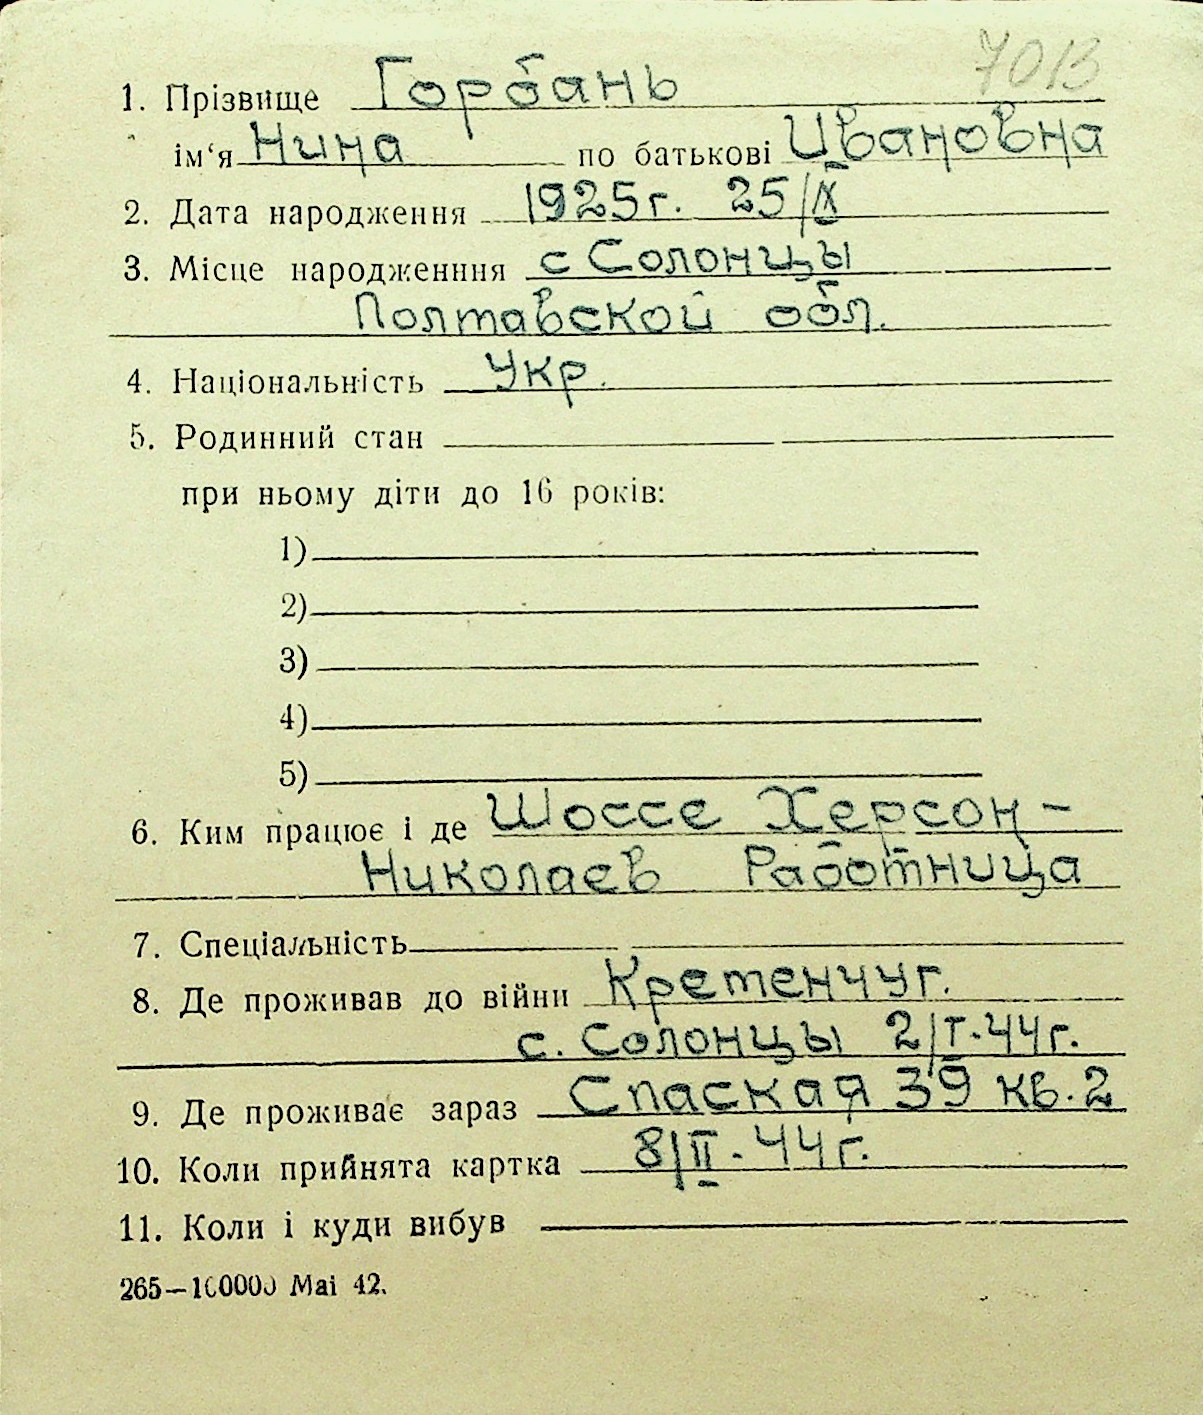 7013
1. Прізвище Горбань
ім'я Нина по батькові Ивановна
2. Дата народження 1925г. 25/IX
3. Місце народженння с Солонцы
Полтавской обл.
4. Національність Укр.
5. Родинний стан
при ньому діти до 16 років:
1)
2)
3)
4)
5)
6. Ким працює і де Шоссе Херсон-
Николаев Работница
7. Спеціальність
8. Де проживав до війни Кретенчуг.
с. Солонцы 2/I-44г.
9. Де проживає зараз Спаская 39 кв.2
10. Коли прийнята картка 8/II-44г.
11. Коли і куди вибув
265—100000 Mai 42.